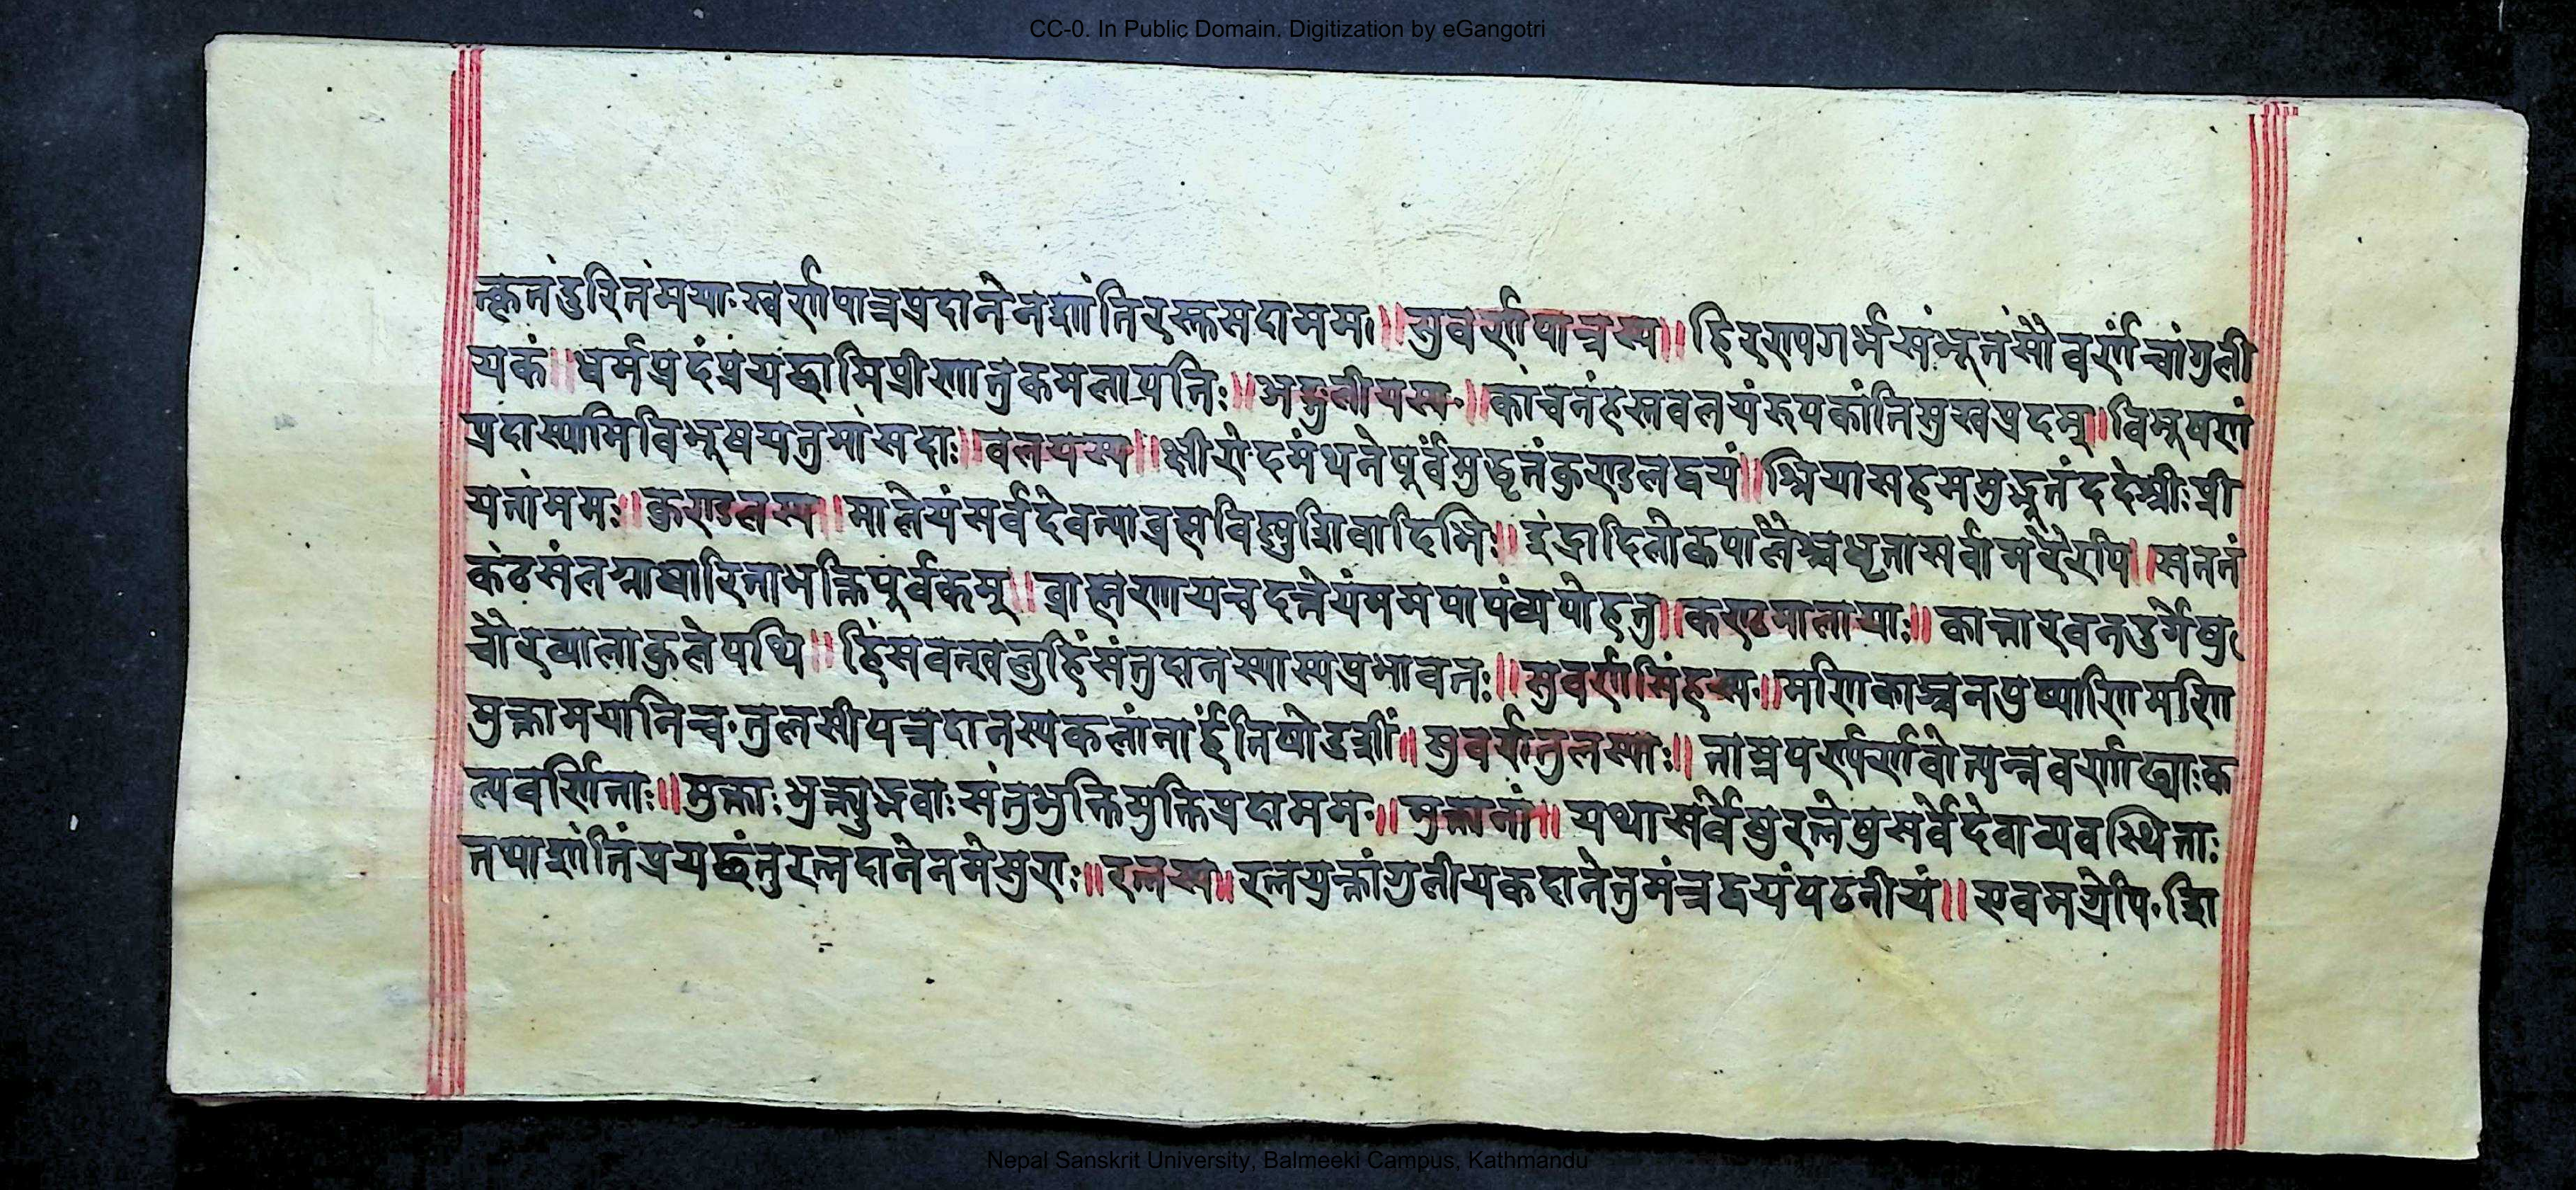 CC-0. In Public Domain. Digitization by eGangotri
त्कृतंदुरितंमया॰स्वर्णपात्रप्रदानेनशांतिरस्तुसदामम। ॥सुवर्णपात्रस्य॥ हिरण्यगर्भसंभूतंसौवर्णंचांगुली
यकं॥धर्मप्रदंप्रंयछामिप्रीणातुकमलापतिः॥अङ्गुलीयस्य॰॥कांचनंहस्तवलयंरूपकांतिसुखप्रदम्॥विभूषणं
प्रदास्यामिविभूषयतुमांसदाः॥वलयस्य॥क्षीरोदमंथनेपूर्वमुद्धृतंकुण्डलद्वयं॥श्रियासहसमुद्भूतंददेश्रीःप्री
यतांममः॥कुण्डलस्य॥मालेयंसर्वदेवस्याब्रह्मविष्णुशिवादिभिः॥इंद्रादिलोकपालैश्चधृतासर्वामरैरपि॥सततं
कंठसंलग्नाधारिताभक्तिपूर्वकम्॥ब्राह्मणायचदत्तेयंममपापंव्यपोहतु॥कण्ठमालायाः॥कान्तारवनदुर्गेषु
चौरव्यालाकुलेपथि॥हिंसवत्खलुहिंसंतुदानस्यास्यप्रभावतः॥सुवर्णसिंहस्य॰॥मणिकाञ्चनपुष्पाणिमणि
मुक्तामयानिच॰तुलसीपत्रदानस्यकलांनार्हंतिषोडशीं॥सुवर्णतुलस्याः॥ताम्रपर्ण्यर्णवोत्पन्नवर्णाढ्याःक
ल्पवर्णिताः॥मुक्ताःशुक्त्युद्भवाःसंतुभुक्तिमुक्तिप्रदामम॰॥मुक्तानां॥यथासर्वेषुरत्नेषुसर्वेदेवाव्यवस्थिताः
तथाशांतिंप्रयछंतुरत्नदानेनमेसुराः॥रत्नस्य॥रत्नयुक्तांगुलीयकदानेतुमंत्रद्वयंपठनीयं॥एवमग्रेपि॰शि
Nepal Sanskrit University, Balmeeki Campus, Kathmandu